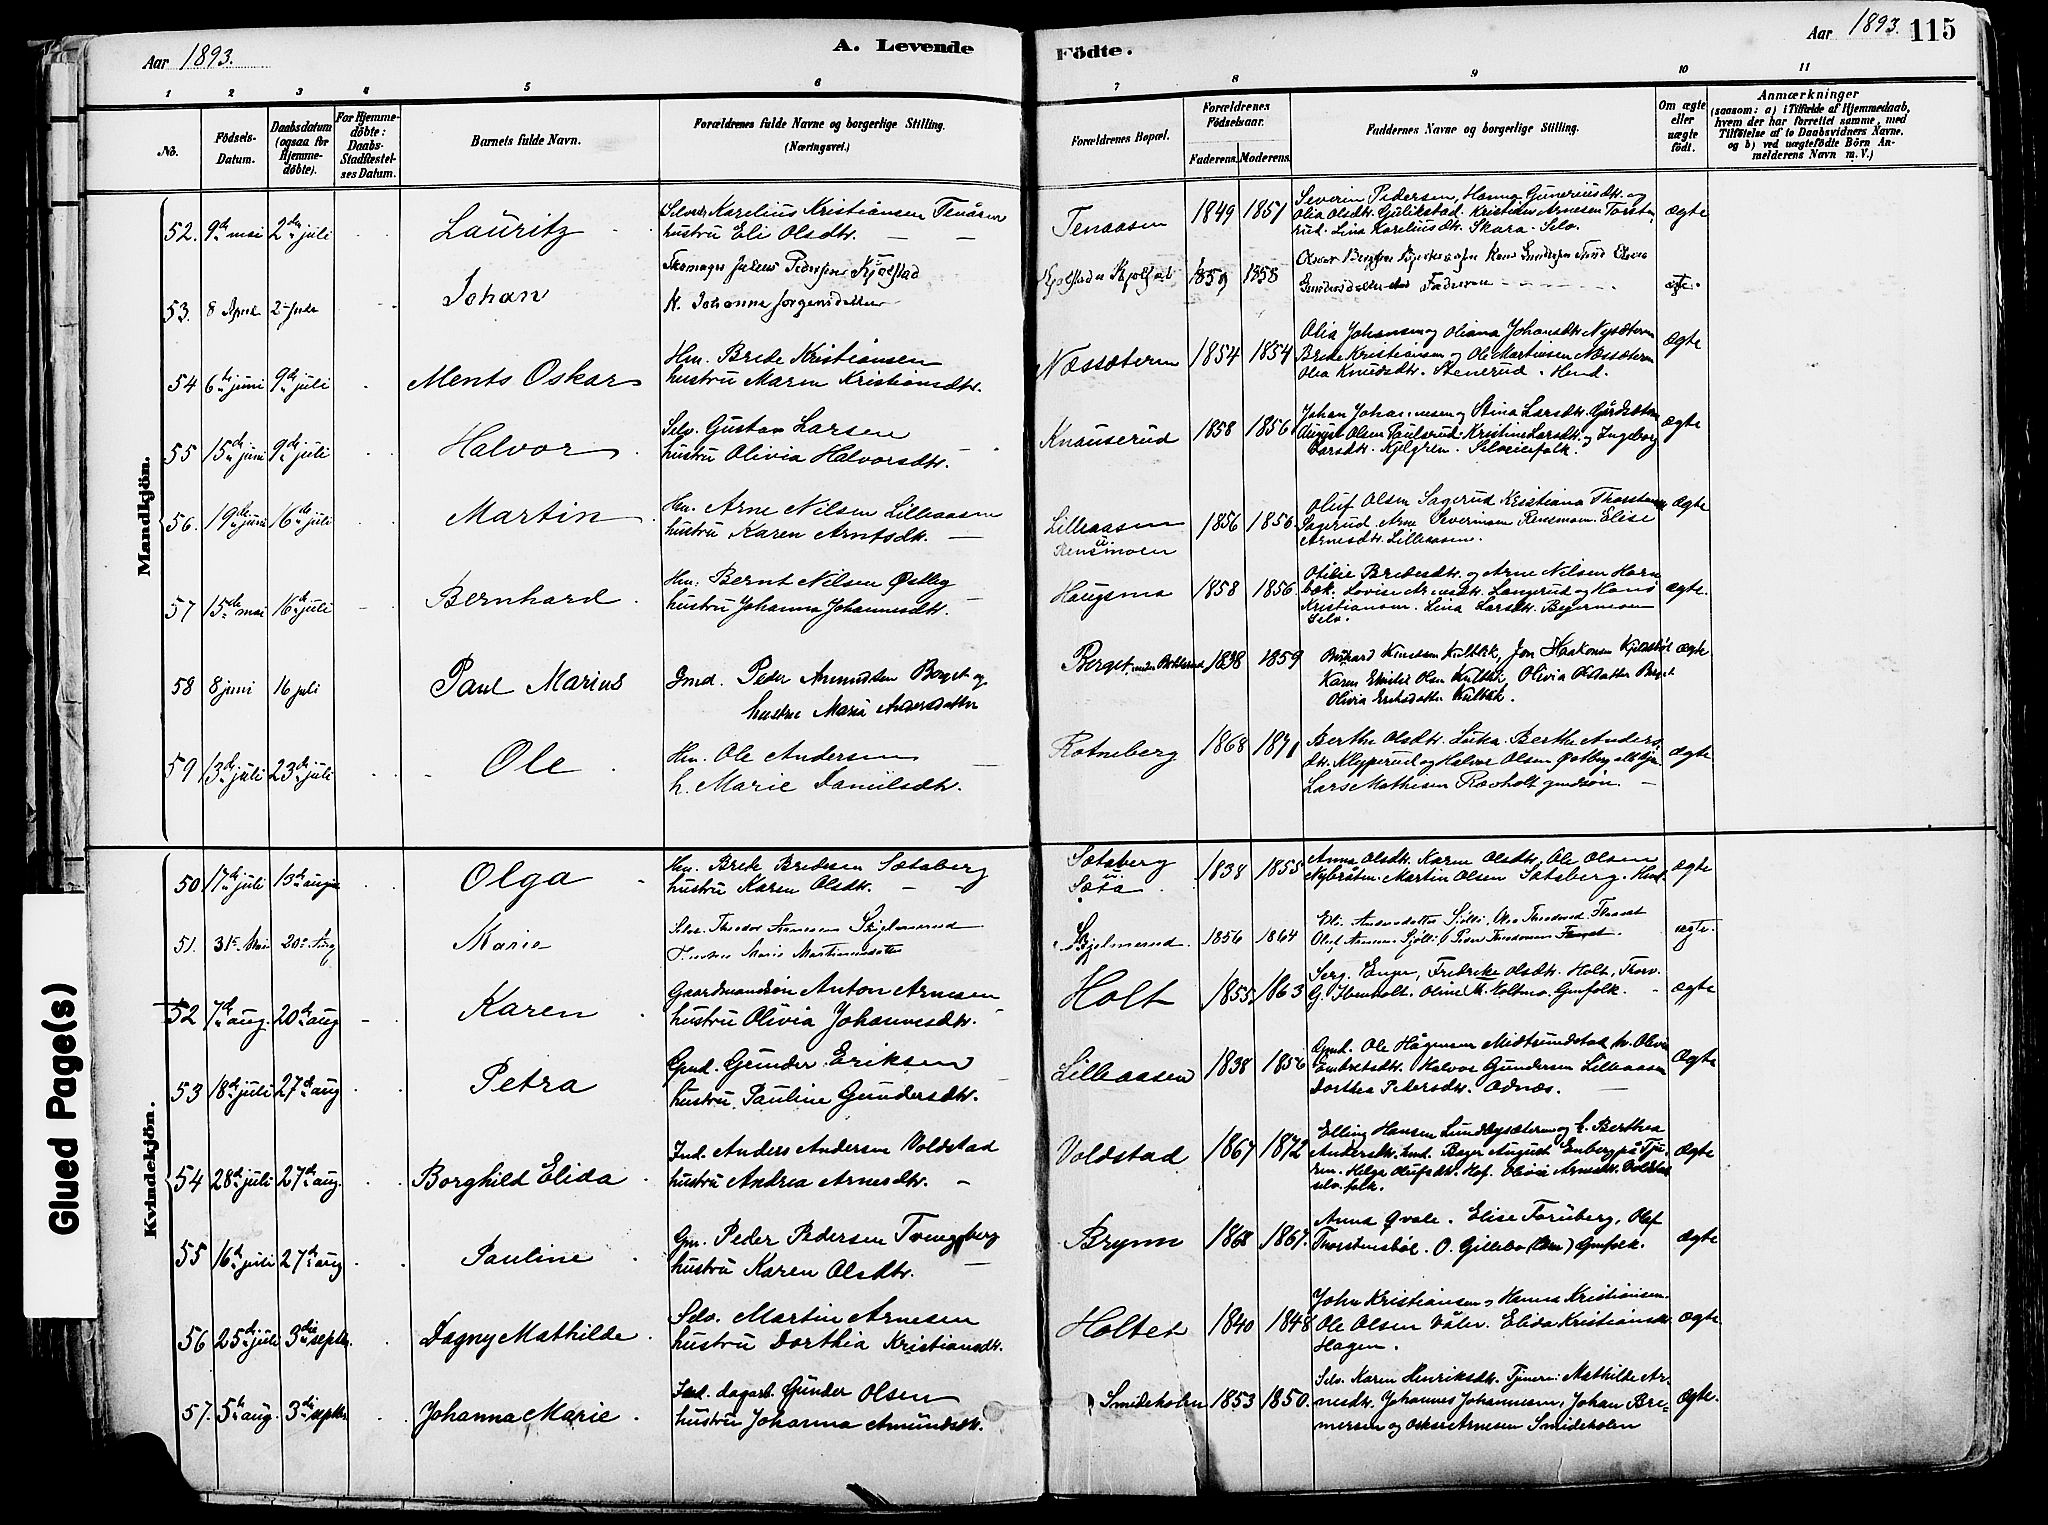 Aar 1893.
A. Levende
Födte.
Aar 1893. 115
1 2 3 4 5 6 7 8 9 10 11
No.
Födsels-Datum.
Daabsdatum (ogsaa for Hjemme-døbte).
For Hjemme-døbte: Daabs-Stadfæstel-ses Datum.
Barnets fulde Navn.
Forældrenes fulde Navne og borgerlige Stilling.
(Næringsvei.)
Forældrenes Bopæl.
Forældrenes Födselsaar.
Faderens. Moderens.
Faddernes Navne og borgerlige Stilling.
Om ægte eller uægte födt.
Anmærkninger
(saasom: a) i Tilfælde af Hjemmedaab,
hvem der har forrettet samme, med
Tilföielse af to Daabsvidners Navne,
og b) ved uægtefödte Börn An-
melderens Navn m. V.)
Mandkjön.
52. 9de mai 2den juli Lauritz
Selveier Karelius Kristiansen Tenåsen
hustru Eli Olsdtr.
Tenaasen 1849 1851
Severin Pedersen, Hanna Guneriusdtr. og
Olia Olsdtr. Gulikstad. Kristian Arnesen Torste-
rud. Lina Kareliusdtr. Skara. Selv.
ægte
53. 8 April Johan
Skomager Julius Pedersen Kjølstad
H. Johanne Jørgensdatter
1859 1858
Faderen
ægte.
54 6te juni 9de juli Ments Oskar
Hm. Brede Kristiansen
hustru Maren Kristiansdtr.
Næssæteren 1854 1854
Olia Johansen og Oliana Johansdtr. Nysæteren
Brede Kristiansen og Ole Martinsen Næssæteren
Olia Knudsdtr. Stenerud. Hmd.
ægte
55 15de juni 9de juli Halvor
Selv. Gustav Larsen
hustru Olivia Halvorsdtr.
Knauserud 1858 1856
Johan Johannesen og Stina Larsdtr. Gårdsæter
August Olsen Paulsrud. Kristine Larsdtr. og Ingeborg
Larsdtr. Kjelgren. Selveierfolk.
ægte
56. 19de juni 16de juli Martin
Hm. Arne Nilsen Lilleaasen
hustru Karen Arntsdtr.
Lilleaasen
u.
Rensmoen
1856 1856
Oluf Olsen Sagerud Kristiana Thorstensen
Sagerud Arne Severinsen Rensmoen. Elise
Arnesdtr. Lilleaasen.
ægte
57 15de mai 16de juli Bernhard
Hm. Bernt Nilsen Østby
hustru Johanna Johannesdtr.
Haugsmo 1858 1856
Otilie Bredesdtr. og Arne Nilsen Horn-
bæk. Lovise Arnesdtr. Langerud og Hans
Kristiansen. Lina Larsdtr. Bejermoen
Selv.
ægte.
58 8 juni 16 juli Paul Marius
Jmd. Peder Amundsen Berget og
hustru Maria Andersdatter
Berget under 1838 1859
Karen Emilie Olsen Kulblik, Olivia Olsdatter Berget
Olivia Eriksdatter Kulblik.
ægte
59 13de juli 23de juli Ole
Hm. Ole Andersen
h. Marie Danielsdtr.
Rotneberg 1868 1871
Berthe Olsdtr. Luka. Berthe Anders-
dtr. Klypperud og Halvor Olsen Østberg
Lars Mathisen Ravholt gmdsøn.
ægte
Kvindekjön.
50 17de juli 13de aug. Olga
Hm. Brede Bredesen Sætaberg
hustru Karen Olsdtr.
Sætaberg
u.
Sæta
1838 1855
Anna Olsdtr. Karen Olsdtr. Ole Olsen
Nybråten. Martin Olsen Sætaberg. Hmd.
ægte
51. 31te Mai 20de Aug Marie
Selv. Theodor Arnesen Skjelmerud
Hustru Marie Martinusdatter
Skjelmerud. 1856 1864
Eli Andersdatter Sjølli,
Oluf Arnesen Sjølli,
ægte.
52 7de aug. 20de aug Karen
Gaardmandsøn Anton Arnesen
hustru Olivia Johannesdtr.
Holt 1855 1863
Serg. Enger, Fredrike Olsdtr. Holt, Thorv.
G. Ibenholt. Oline M. Voltmo. Gmfolk.
ægte
53 18de juli 27de aug Petra
Gmd. Gunder Eriksen
hustru. Pauline Gundersdtr.
Lilleaasen 1838 1856
Gmd. Ole Hågensen Midtsundstad h. Olivia
Embretsdtr. Halvor Gundersen Lilleaasen
Dorthea Pedersdtr. Odnæs.
ægte
54 28de juli 27de aug. Borghild Elida
Ind. Anders Andersen Voldstad
hustru Andrea Arnesdtr.
Voldstad 1867 1872
Elling Hansen Lundbysæteren og h. Berthea
Andersdtr. hmd. Bager August Enberg på Tju-
ren. Helga Olufsdtr. Hof. Olivia Arnesdtr. Voldstad
selv.folk.
ægte
55 16de juli 27de aug Pauline
Gm. Peder Pedersen Tvengsberg
hustru Karen Olsdtr.
Brynn 1868 1867.
Anna Qvale. Elise Foruberg, Olaf
Thorstensbøl. O. Gillebo Gmfolk.
ægte
56 25de juli 3die septbr. Dagny Mathilde
Selv. Martin Arnesen
hustru Dorthia Kristiansdtr.
Holtet 1840 1848
John Kristiansen, Hanna Kristiansen.
Ole Olsen Våler. Elida Kristiansdtr.
Hagen.
ægte
57. 5te aug. 3die septbr Johanna Marie
Ind. dagarb. Gunder Olsen
hustru Johanna Amundsdtr.
Smideholen 1853 1850.
Selv. Karen Henriksdtr. Tjneren: Mathilde Ar-
nesdtr. Johannes Johannesen, Johan Bre-
mersen og Oskar Arnesen Smideholen
ægte.
Glued Page(s)